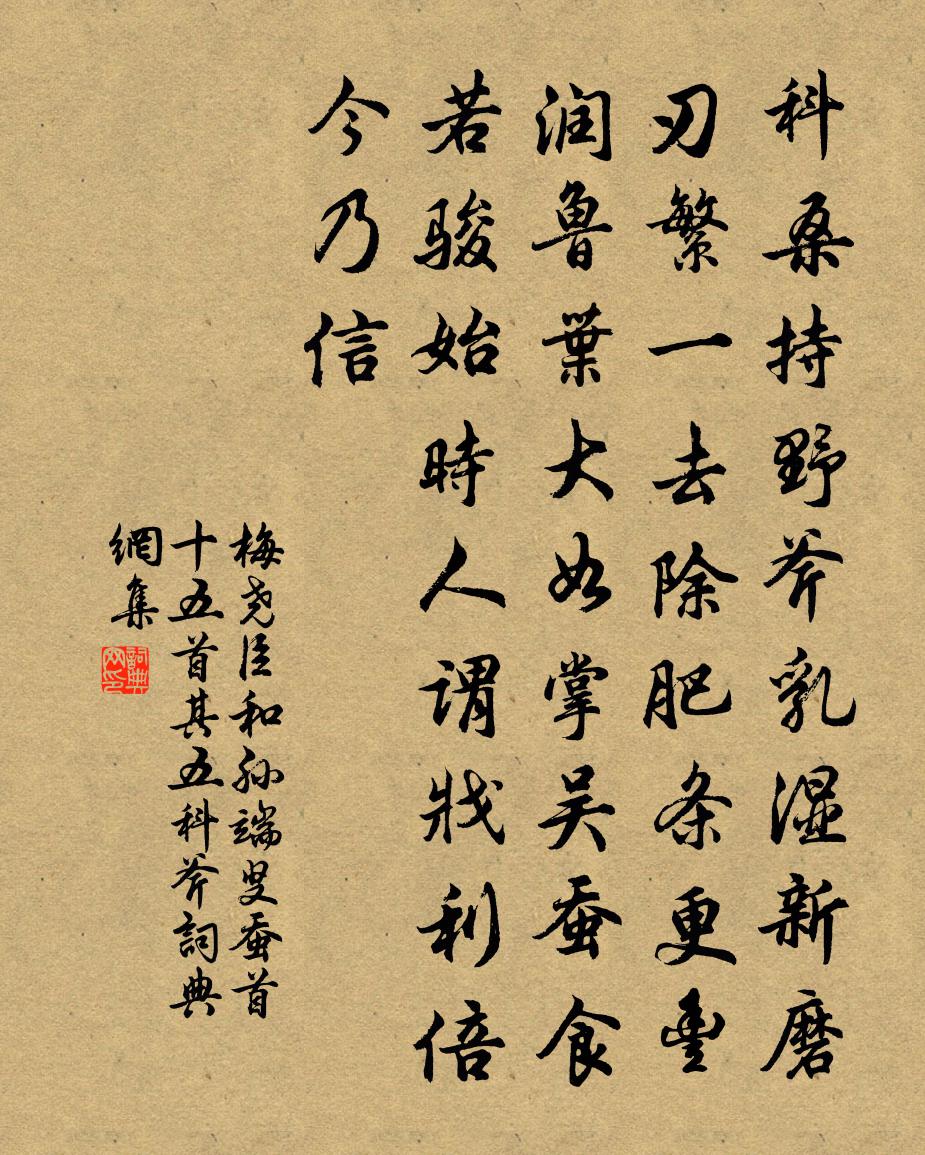 科桑持野斧乳湿新磨
刃繁一去除肥条更豐
润魯葉大如掌吴蚕食
若骏始時人谓戕利倍
今乃信
梅尧臣和孙端叟蚕首
十五首其五科斧詞典
網集
詞典
网印